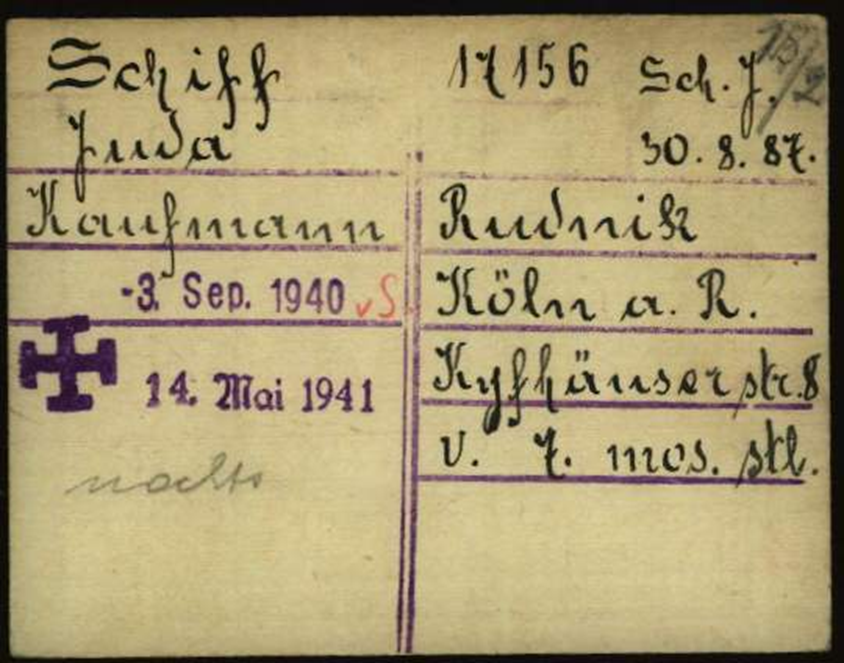 Schiff
Juda
Kaufmann
-3. Sep. 1940 v S.
14. Mai 1941
nachts
17156 Sch. J.
30. 8. 87.
Rudnik
Köln a. R.
Kyfhäuserstr. 8
v. 7. mos. stl.